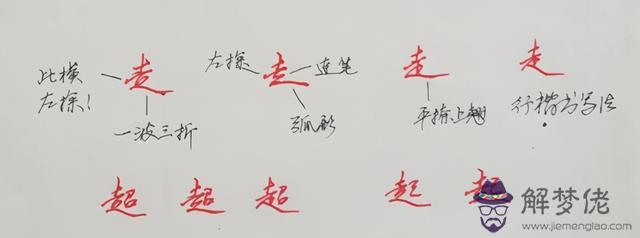 走
此横
左探!
一波三折
走
左探
连笔
弧形
走
平捺上翘
走
行楷书写法
超 超 超 起
解梦佬
www.jiemenglao.com